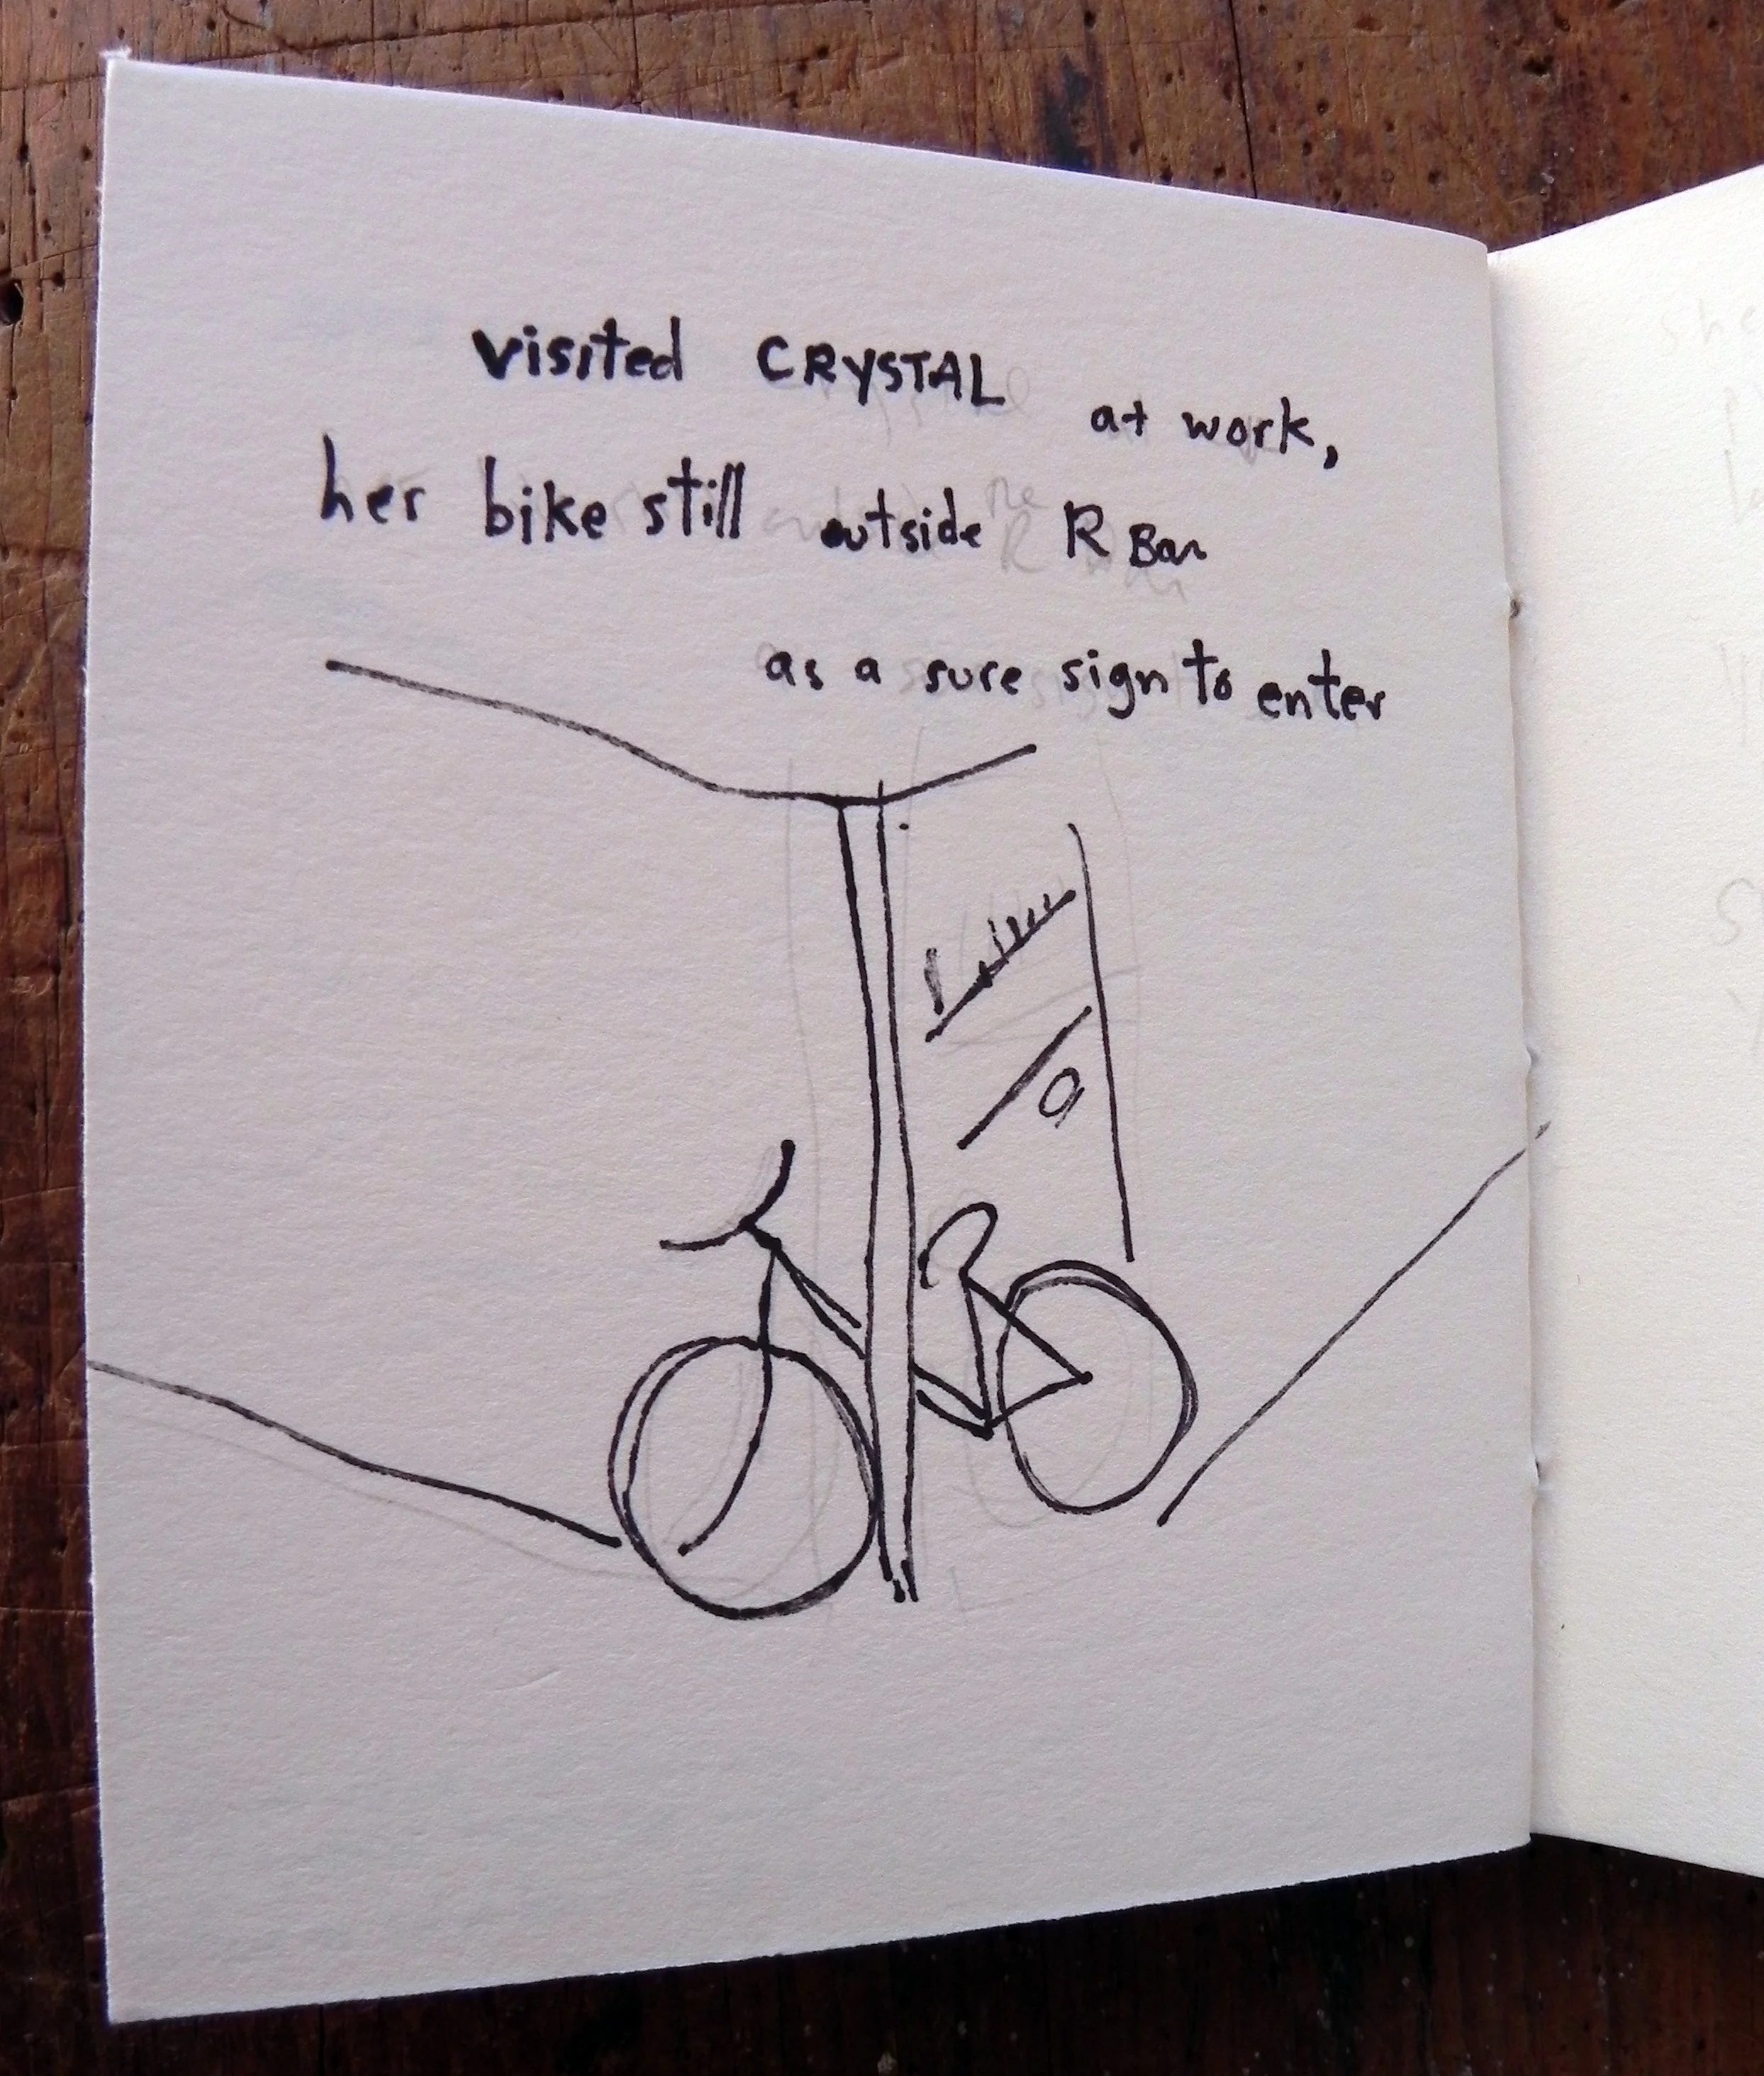 visited CRYSTAL at work,
her bike still outside R Bar
as a sure sign to enter